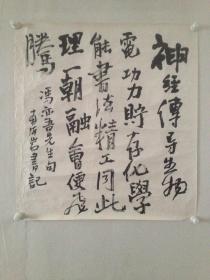 神经傳导生物
電功力貯存化學
能書法精工同此
理一朝融會便飛
騰
馮亦吾先生句
書記